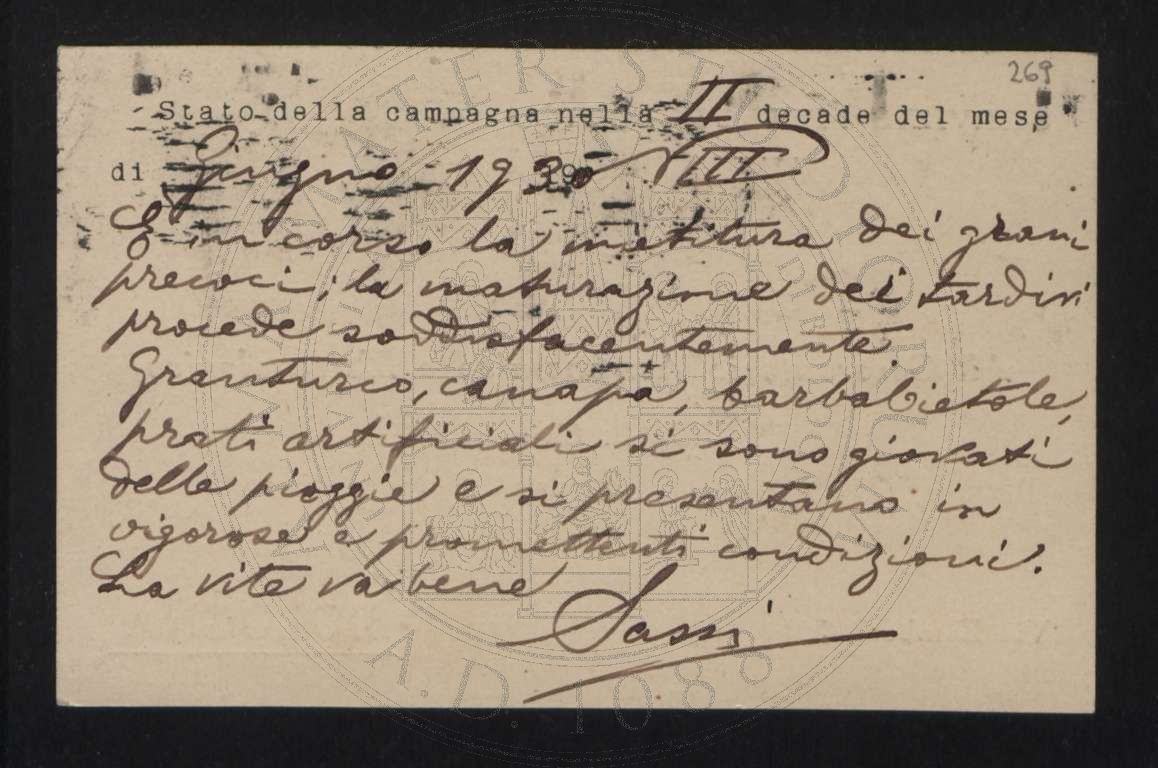 269
Stato della campagna nella II decade del mese
di Giugno 1930 VIII
È in corso la mietitura dei grani
precoci; la maturazione dei tardivi
procede soddisfacentemente.
Granturco, canapa, barbabietole,
prati artificiali si sono giovati
delle pioggie e si presentano in
vigorose e promettenti condizioni.
La vite va bene
Sassi
ALMA MATER STUDIORUM
A.D. 1088